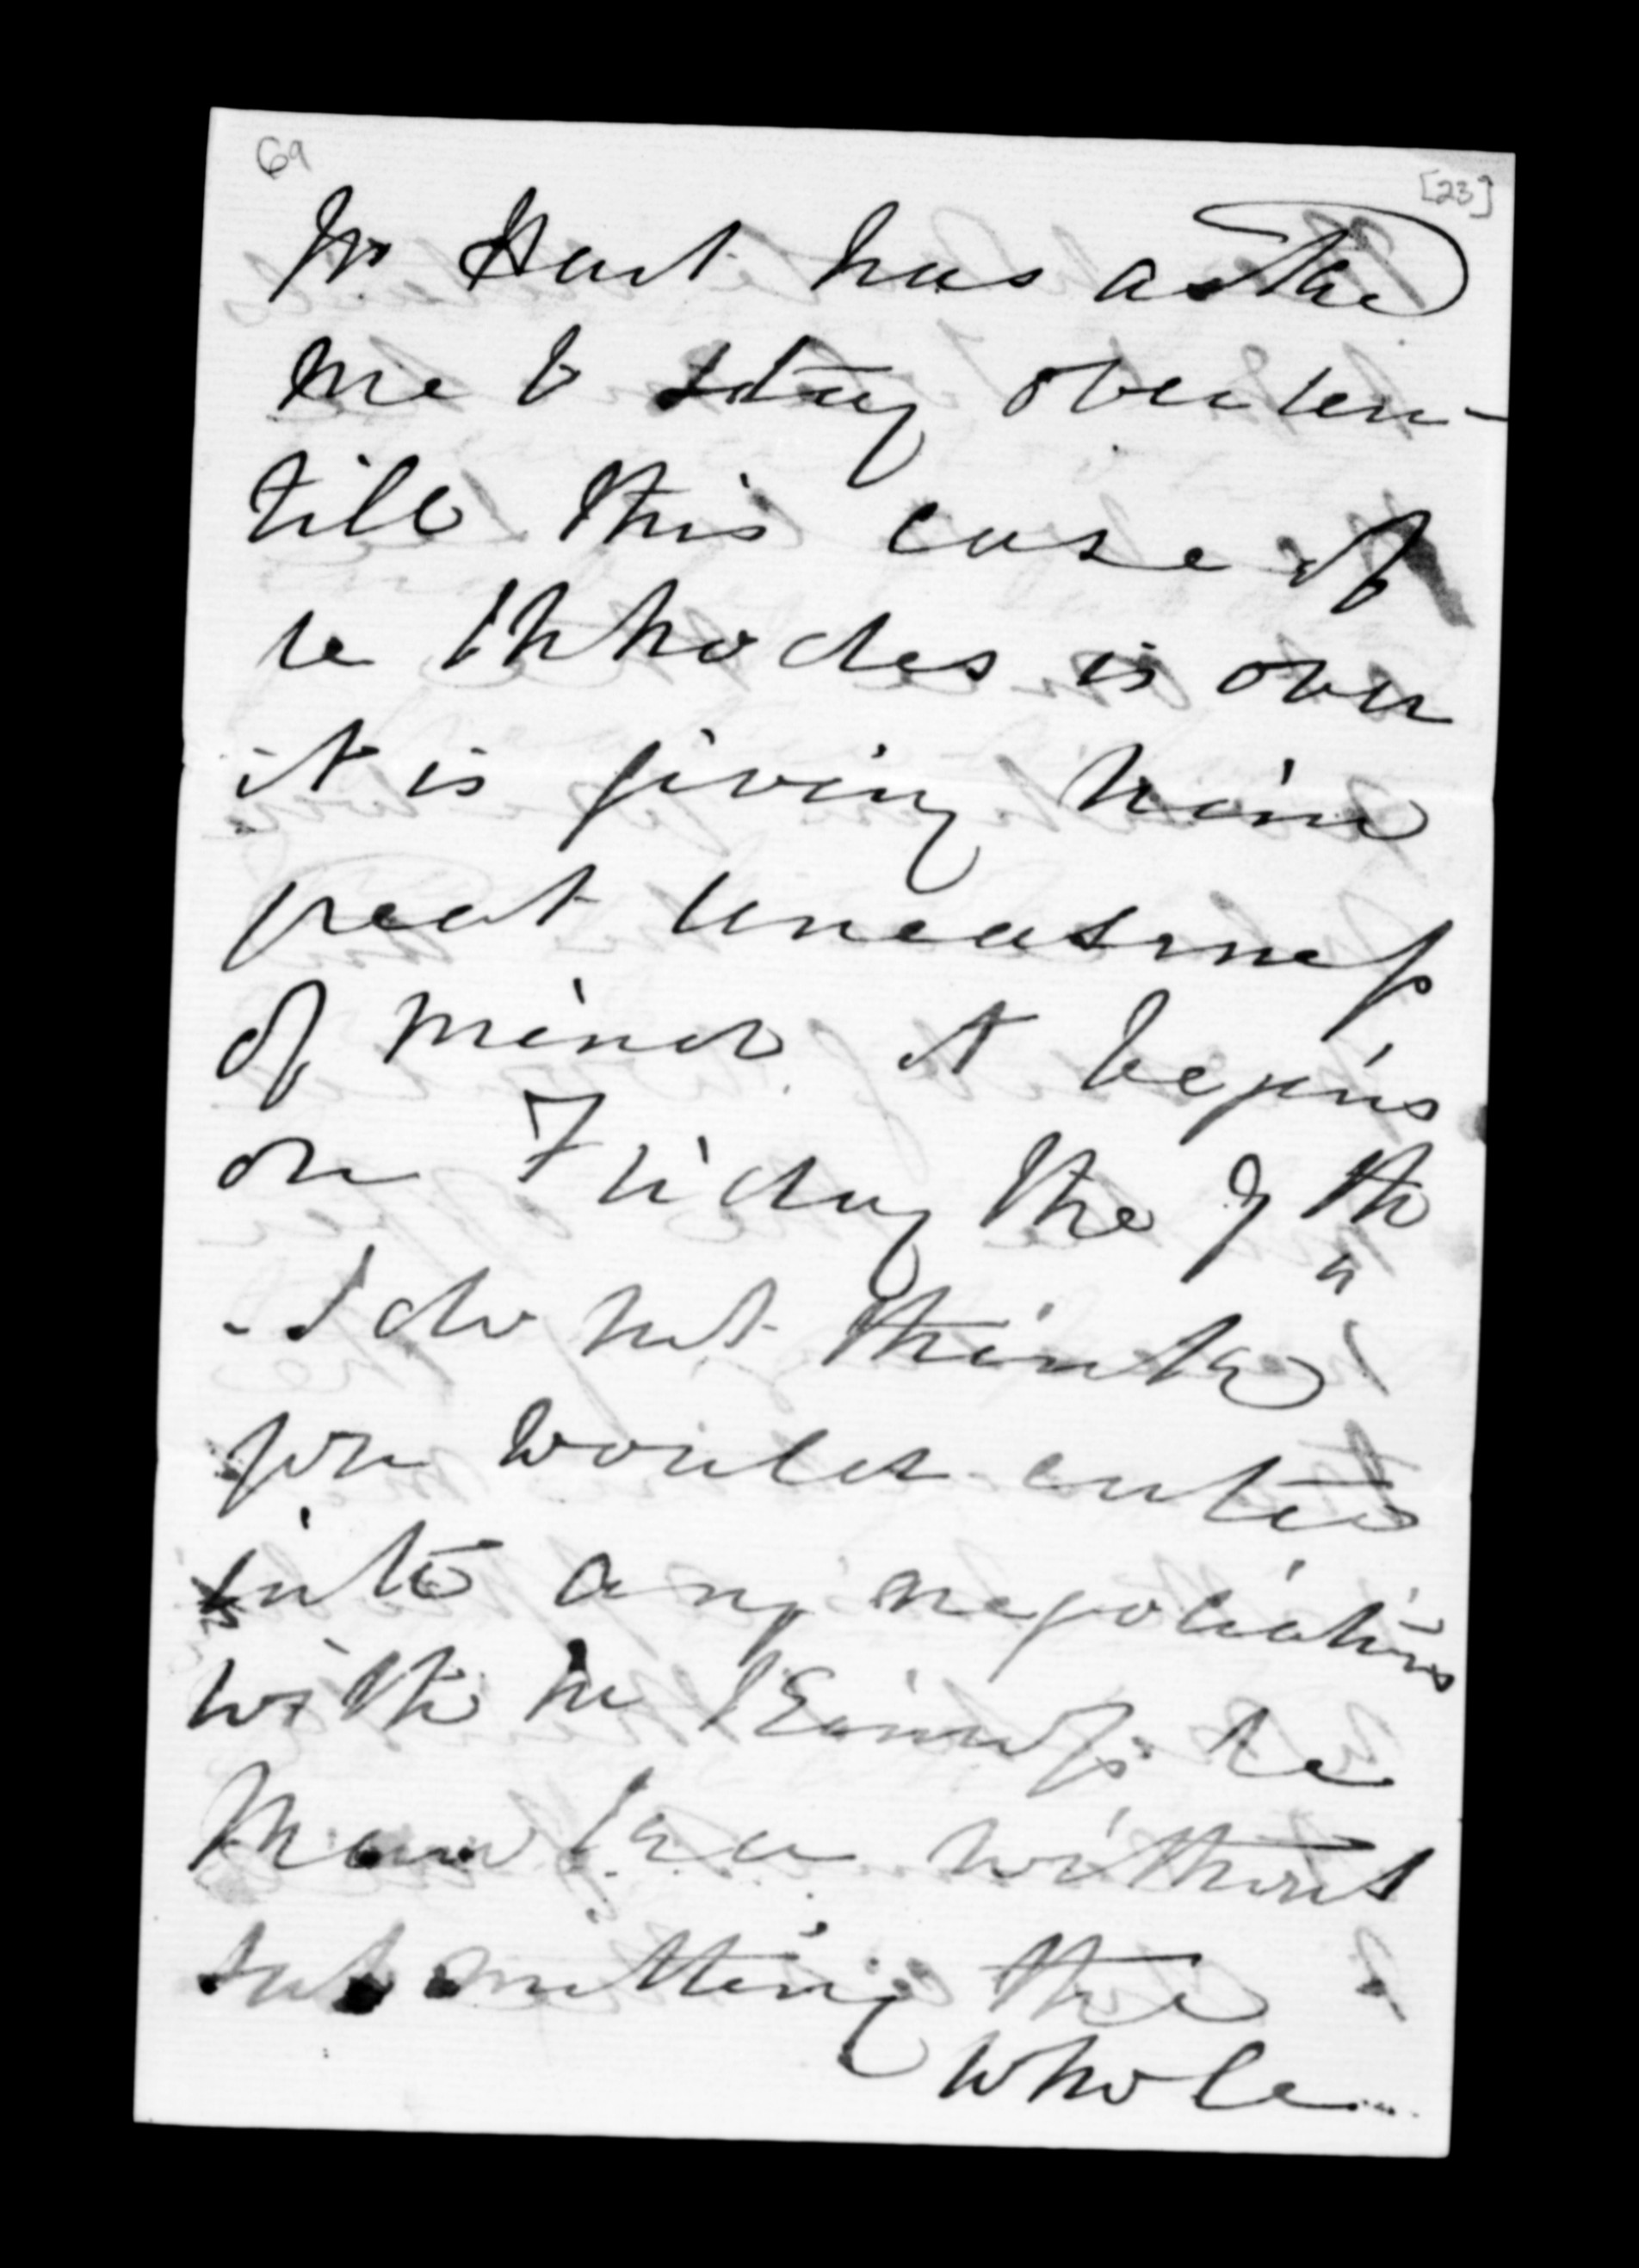 69
[23]
Mr Hart has asked
me to stay over un-
till this case of
re Rhodes is over
it is giving him
great uneasiness
of mind it begins
on Friday the 9th
- I do not think
you would enter
into any negociations
with Mr Kinross re
without
submitting the
whole